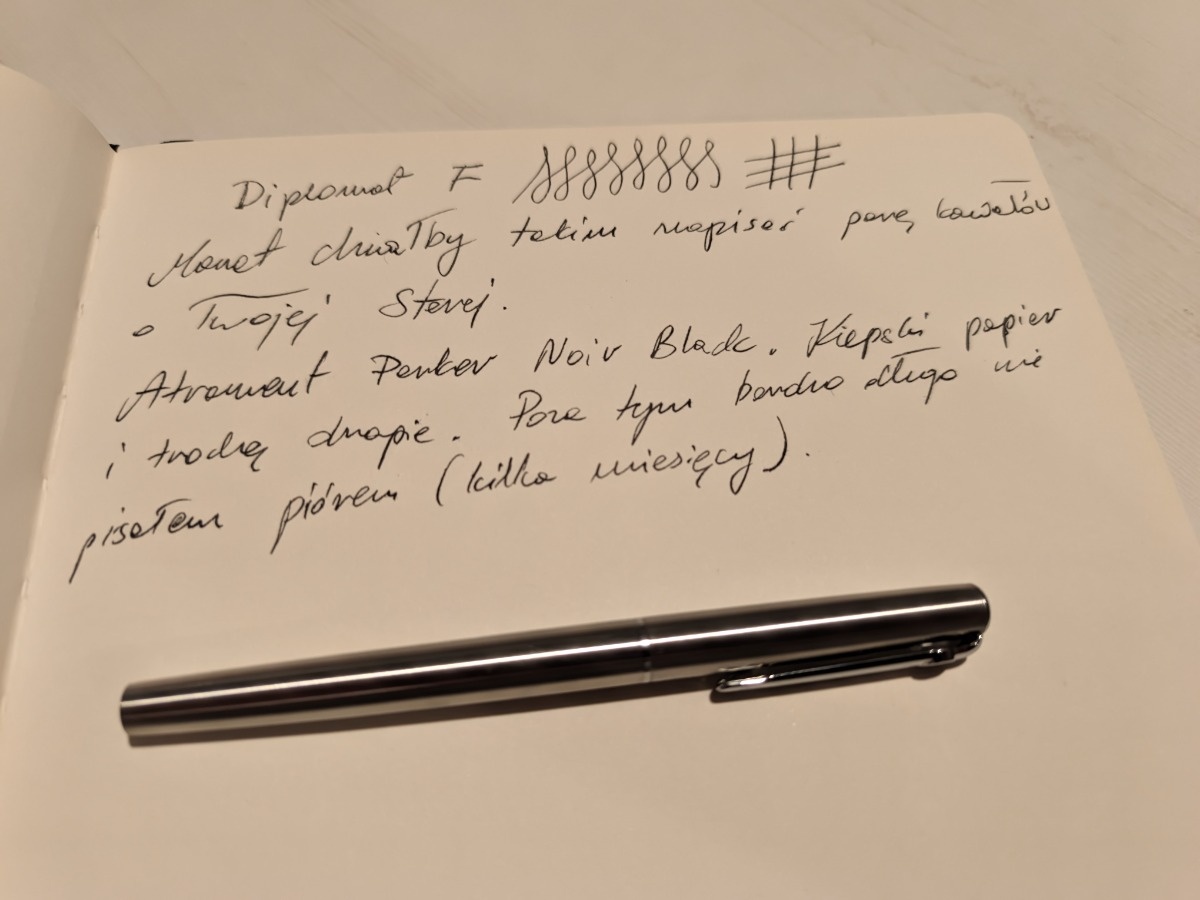 Diplomat F
Monat chciałby takim napisać parę kawałów
o Twojej Starej.
Atrament Parker Noir Black. Kiepski papier
i trochę drapie. Poza tym bardzo długo nie
pisałem piórem (kilka miesięcy).